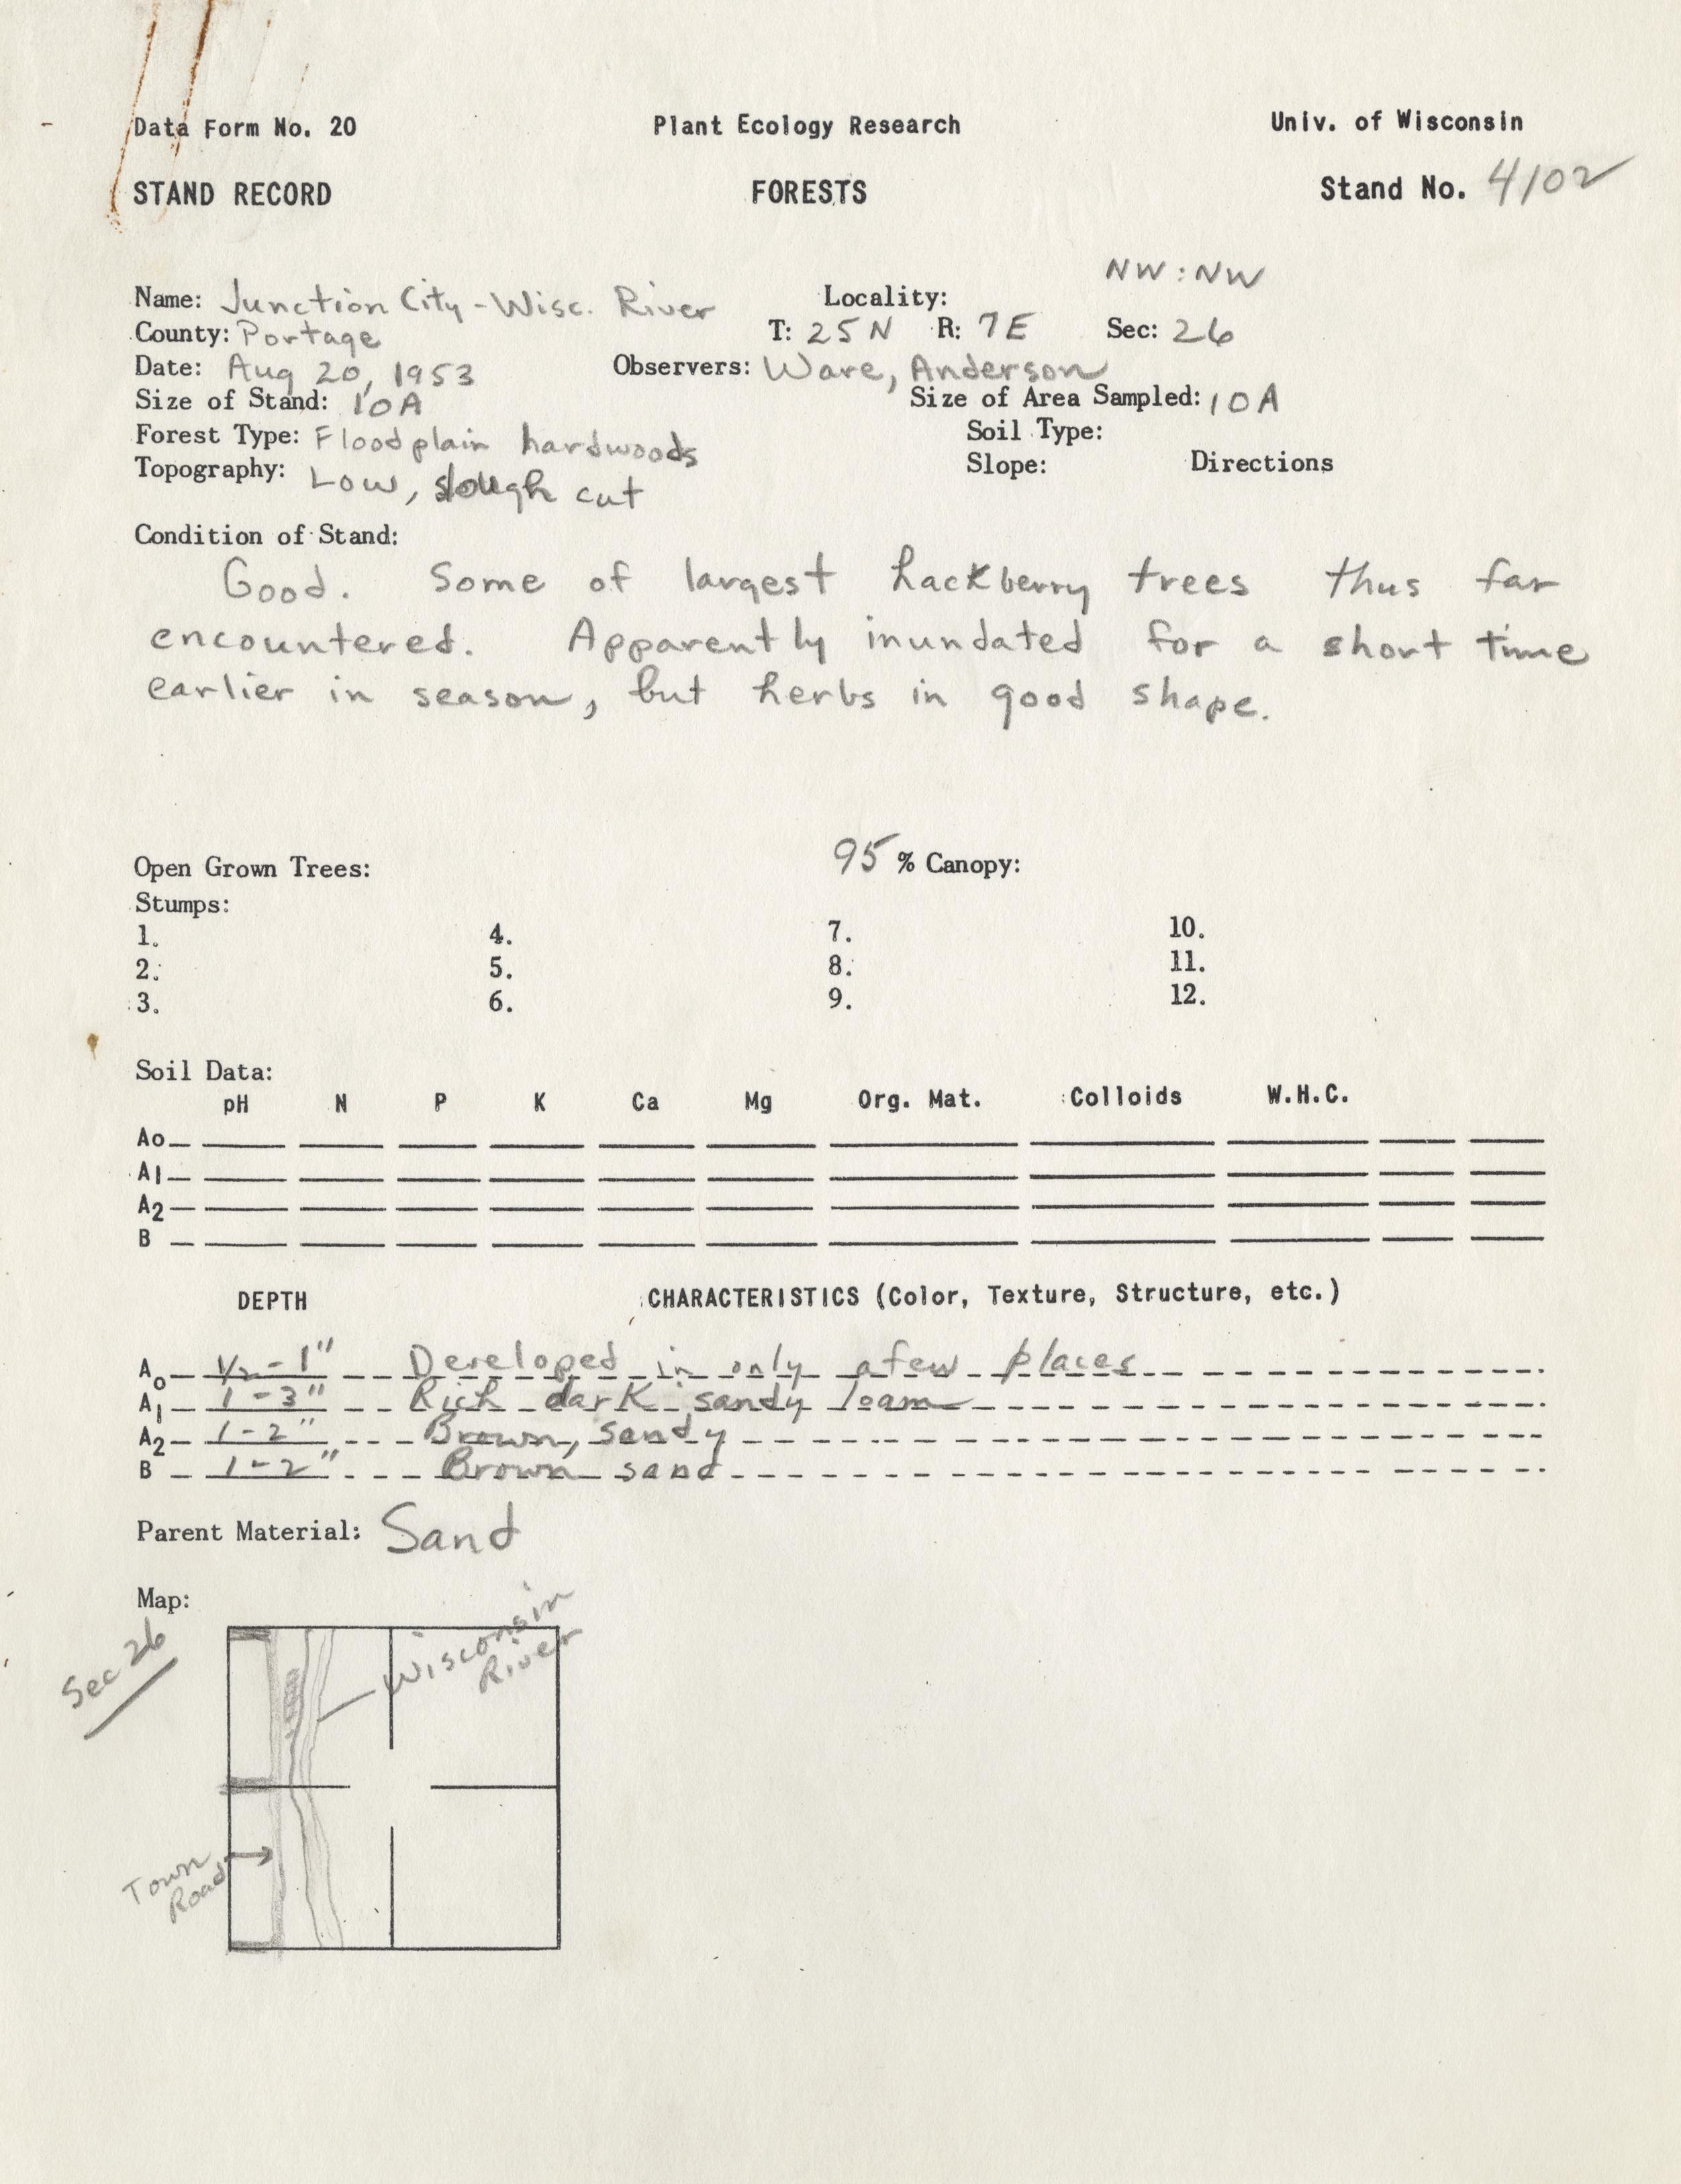 Data Form No. 20 Plant Ecology Research Univ. of Wisconsin
STAND RECORD FORESTS Stand No. 4102
NW:NW
Name: Junction City-Wisc. River Locality:
County: Portage T: 25N R: 7E Sec: 26
Date: Aug 20, 1953 Observers: Ware, Anderson
Size of Stand: 10A Size of Area Sampled: 10A
Forest Type: Floodplain hardwoods Soil Type:
Topography: Low, slough cut Slope: Directions
Condition of Stand:
Good. Some of largest hackberry trees thus far
encountered. Apparently inundated for a short time
earlier in season, but herbs in good shape.
Open Grown Trees: 95 % Canopy:
Stumps:
1. 4. 7. 10.
2. 5. 8. 11.
3. 6. 9. 12.
Soil Data:
pH N P K Ca Mg Org. Mat. Colloids W.H.C.
Ao
A1
A2
B
DEPTH CHARACTERISTICS (Color, Texture, Structure, etc.)
Ao 1/2-1" Developed in only a few places
A1 1-3" Rich dark sandy loam
A2 1-2" Brown, sandy
B 1-2" Brown sand
Parent Material: Sand
Map:
Sec 26
Wisconsin
River
Town
Road